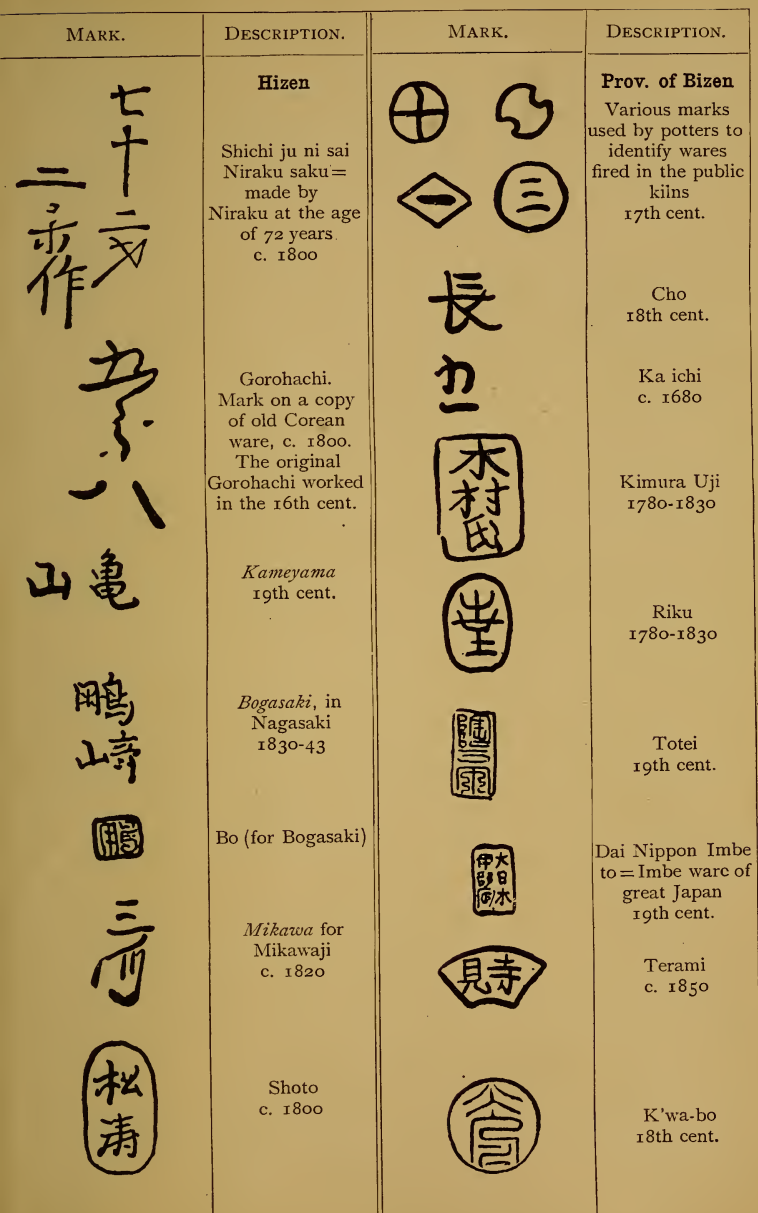 MARK.
DESCRIPTION.
七十二才
二楽作
Hizen
Shichi ju ni sai
Niraku saku =
made by
Niraku at the age
of 72 years
c. 1800
五郎八
Gorohachi.
Mark on a copy
of old Corean
ware, c. 1800.
The original
Gorohachi worked
in the 16th cent.
亀山
Kameyama
19th cent.
鵬
崎
Bogasaki, in
Nagasaki
1830-43
鵬
Bo (for Bogasaki)
三河
Mikawa for
Mikawaji
c. 1820
松
涛
Shoto
c. 1800
MARK.
DESCRIPTION.
一
三
Prov. of Bizen
Various marks
used by potters to
identify wares
fired in the public
kilns
17th cent.
長
Cho
18th cent.
カ一
Ka ichi
c. 1680
木
村
氏
Kimura Uji
1780-1830
Riku
1780-1830
Totei
19th cent.
大日本
伊部
Dai Nippon Imbe
to = Imbe ware of
great Japan
19th cent.
寺見
Terami
c. 1850
K'wa-bo
18th cent.